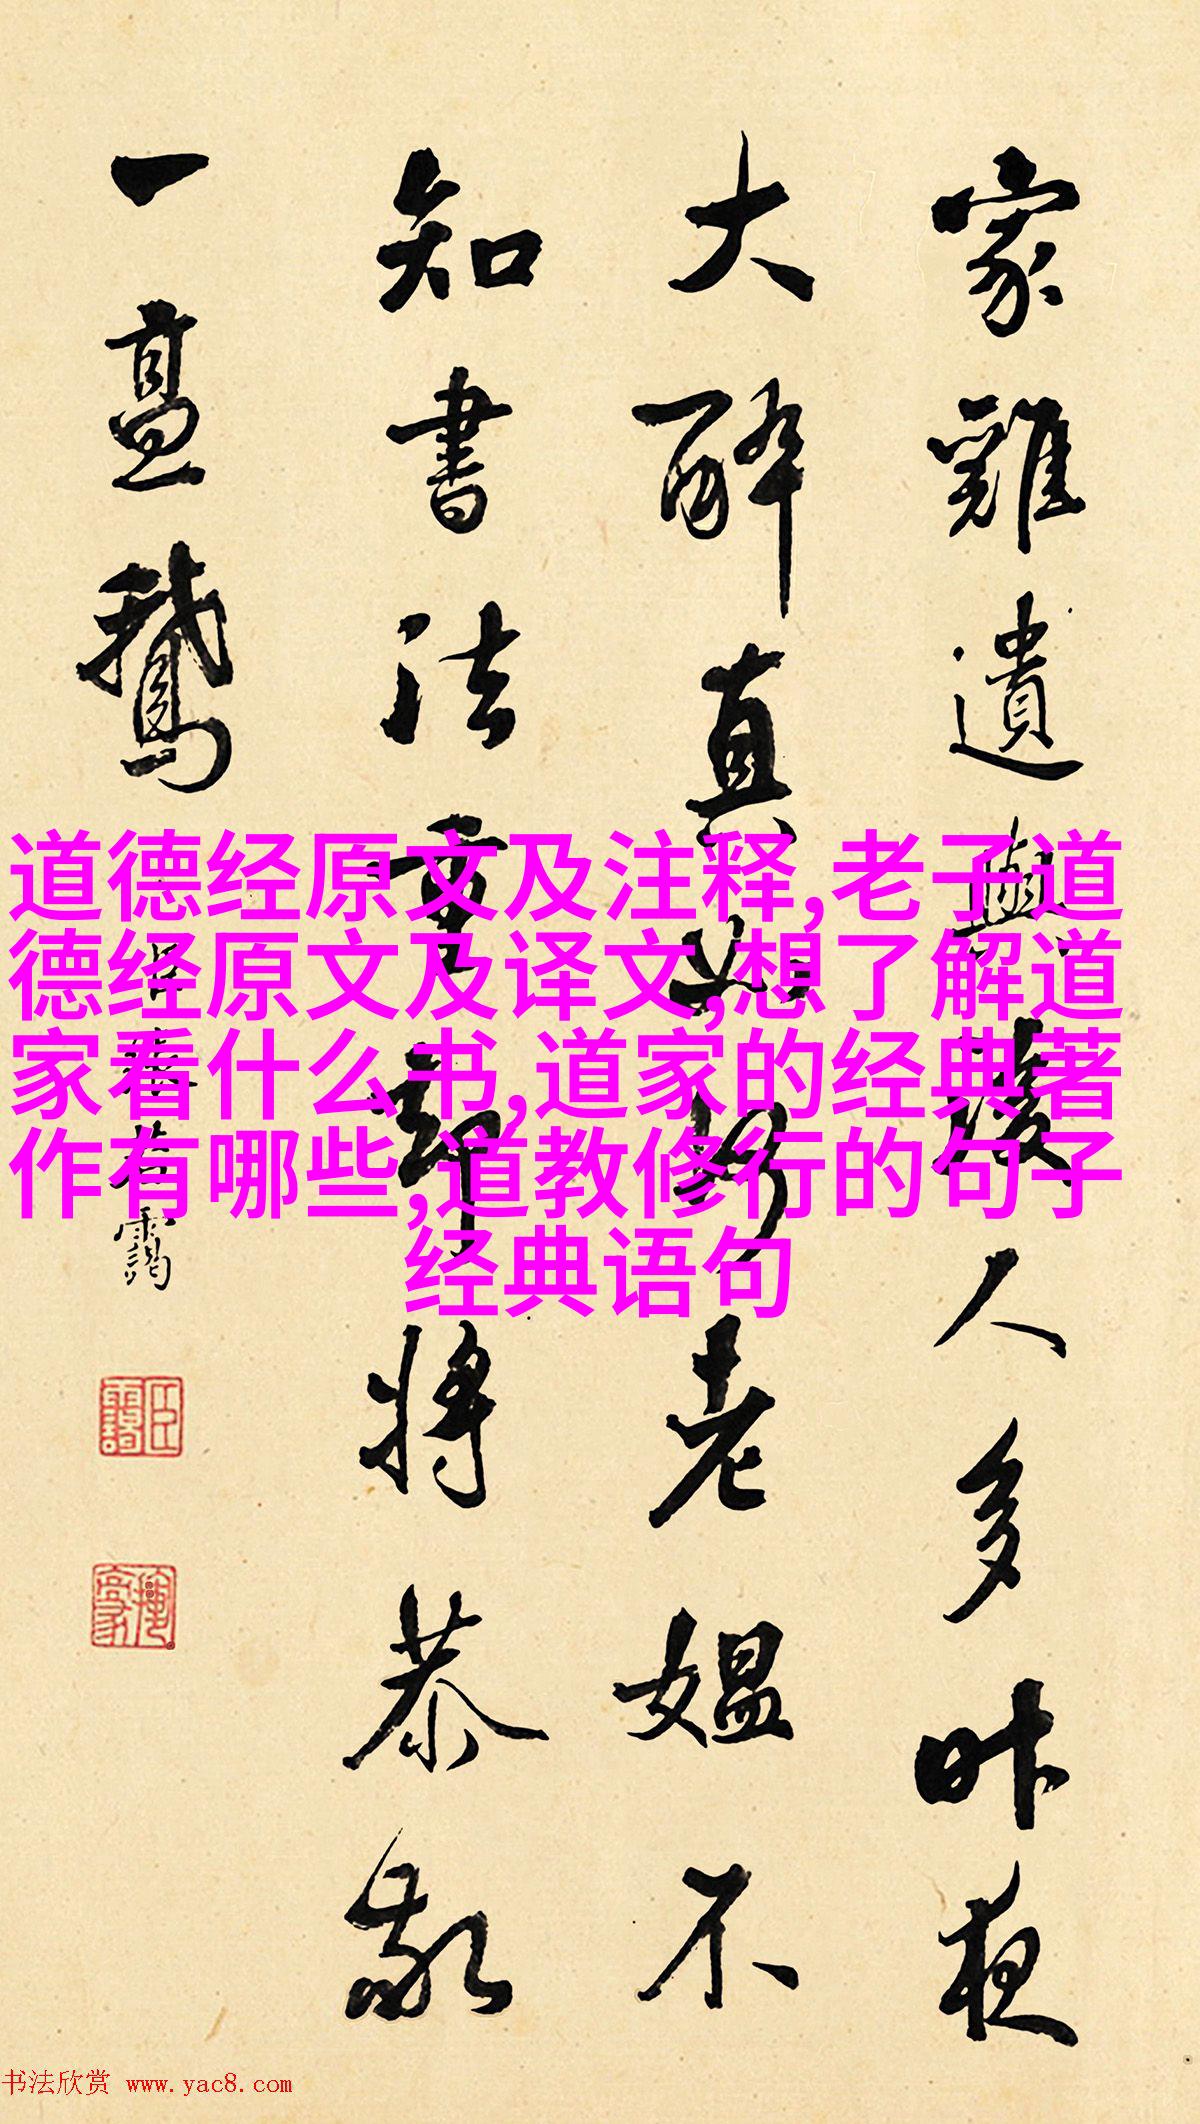 家雞遺與人多昨夜
大醉真如老媼不
知書法重却將恭敬
一鵝
張若靄
道德经原文及注释,老子道
德经原文及译文,想了解道
家看什么书,道家的经典著
作有哪些,道教修行的句子
经典语句
书法欣赏 www.yac8.com